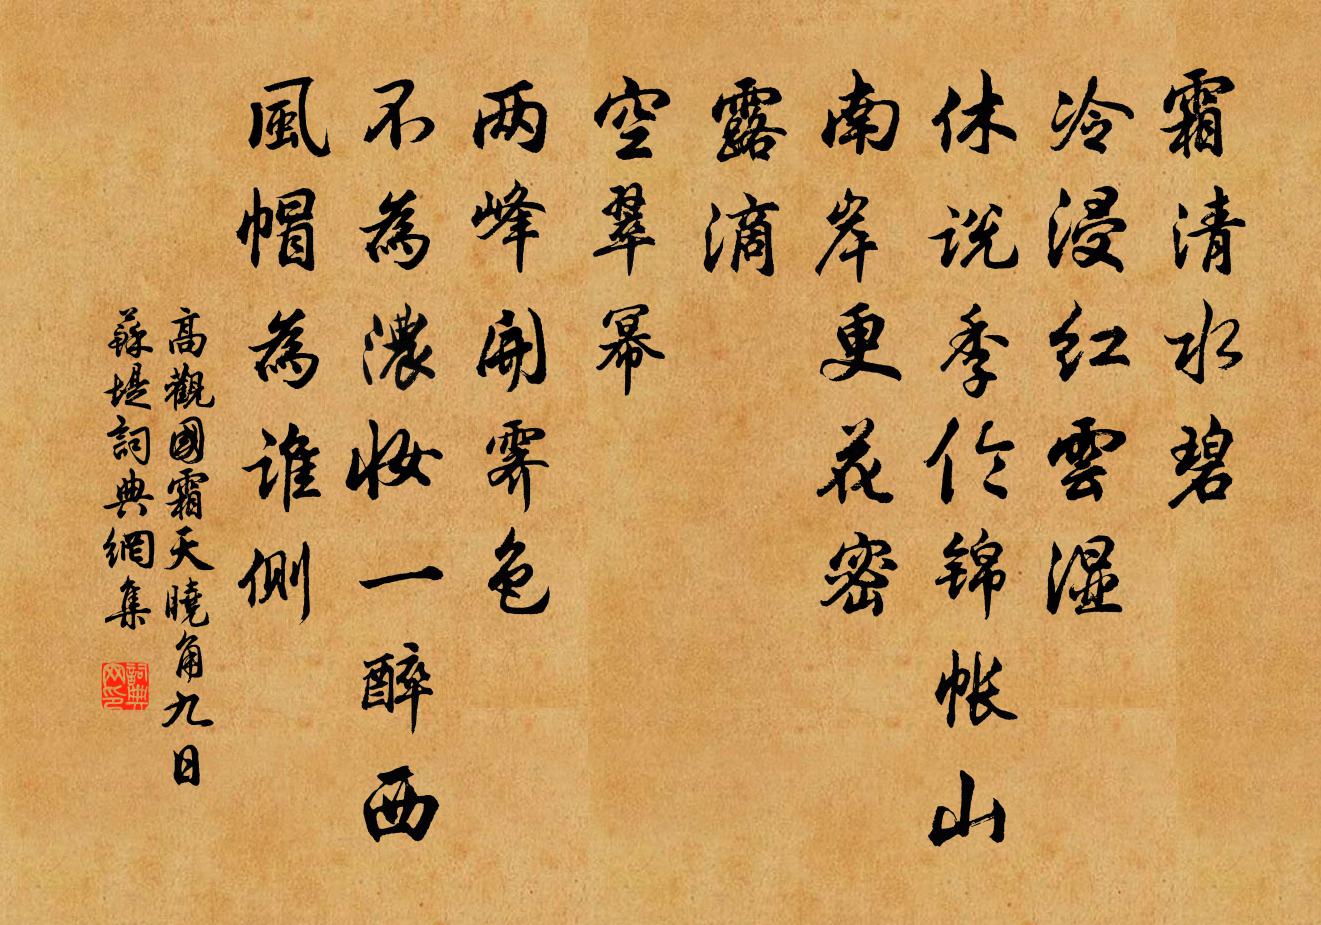 霜清水碧
冷浸紅雲濕
休说季伦锦帐山
南岸更花密
露滴
空翠幂
两峰開霽色
不為濃妆一醉西
風帽為谁側
高觀國霜天曉角九日
蘇堤詞典網集
詞典
网印